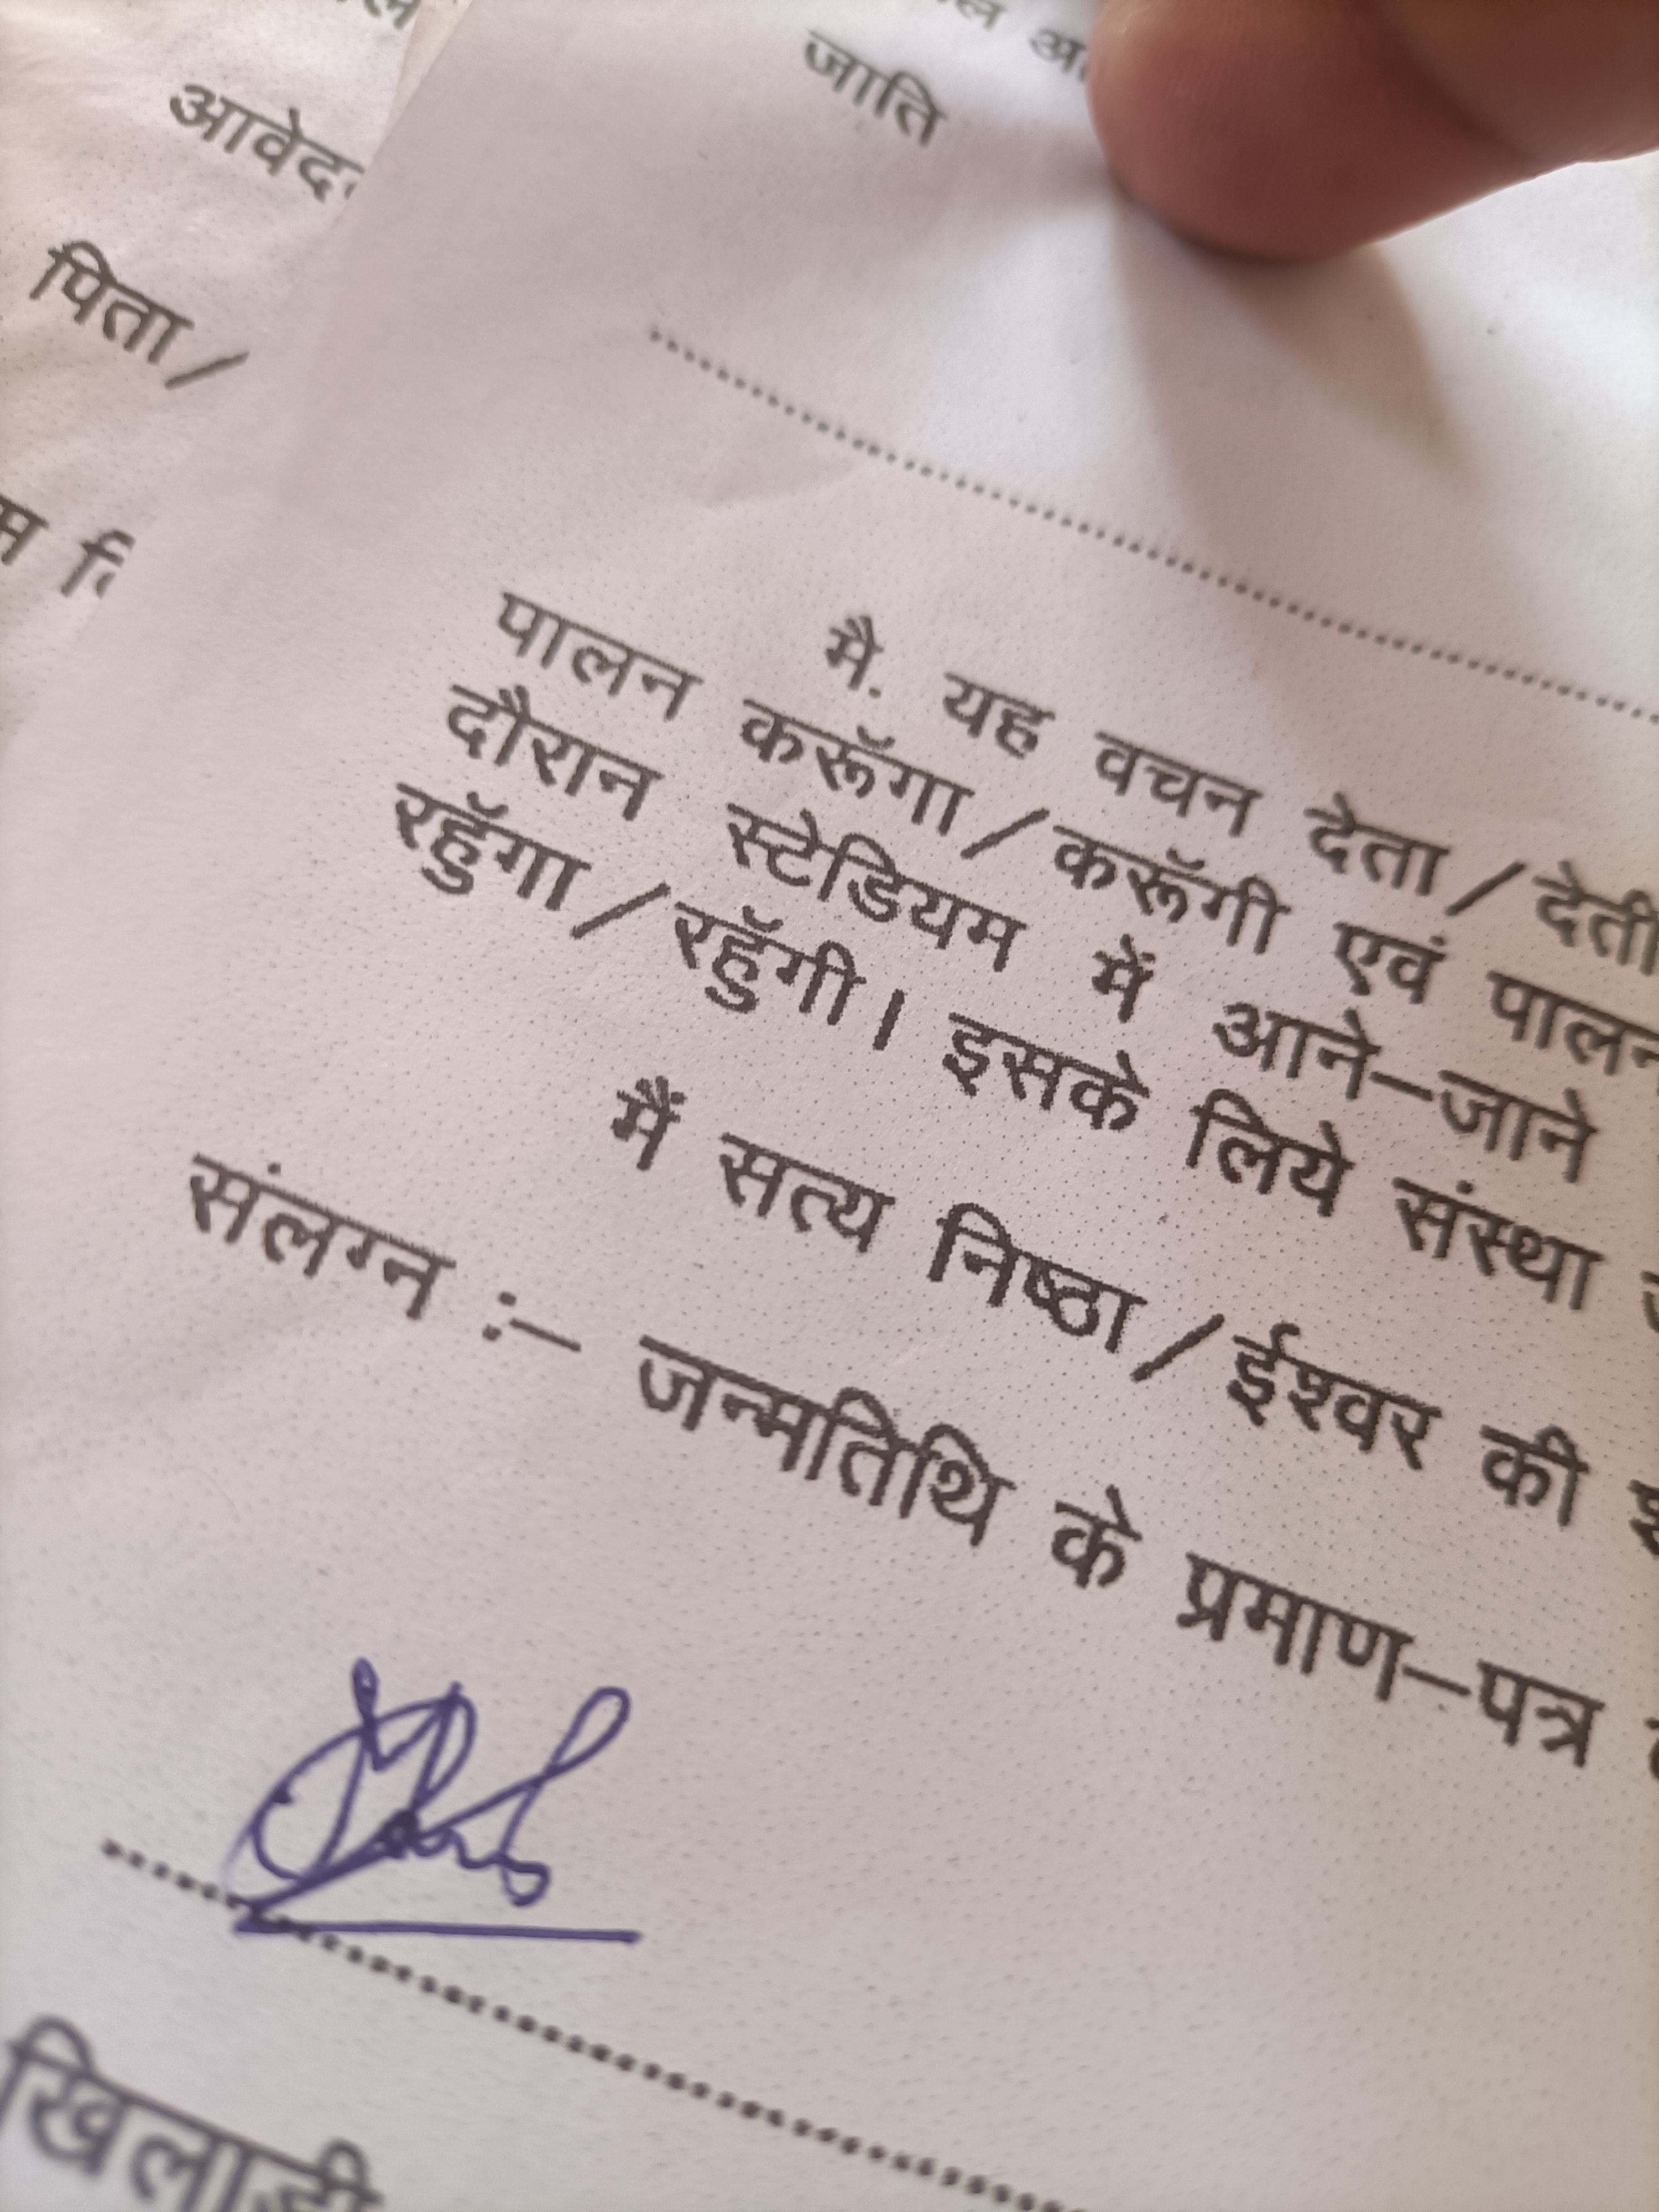 जाति
पिता/
मै. यह वचन देता/देती
पालन करूॅगा/करूॅगी एवं पालन
दौरान स्टेडियम में आने–जाने
रहुॅगा/रहुॅगी। इसके लिये संस्था
मैं सत्य निष्ठा/ईश्वर की
संलग्न :– जन्मतिथि के प्रमाण–पत्र
खिलाड़ी